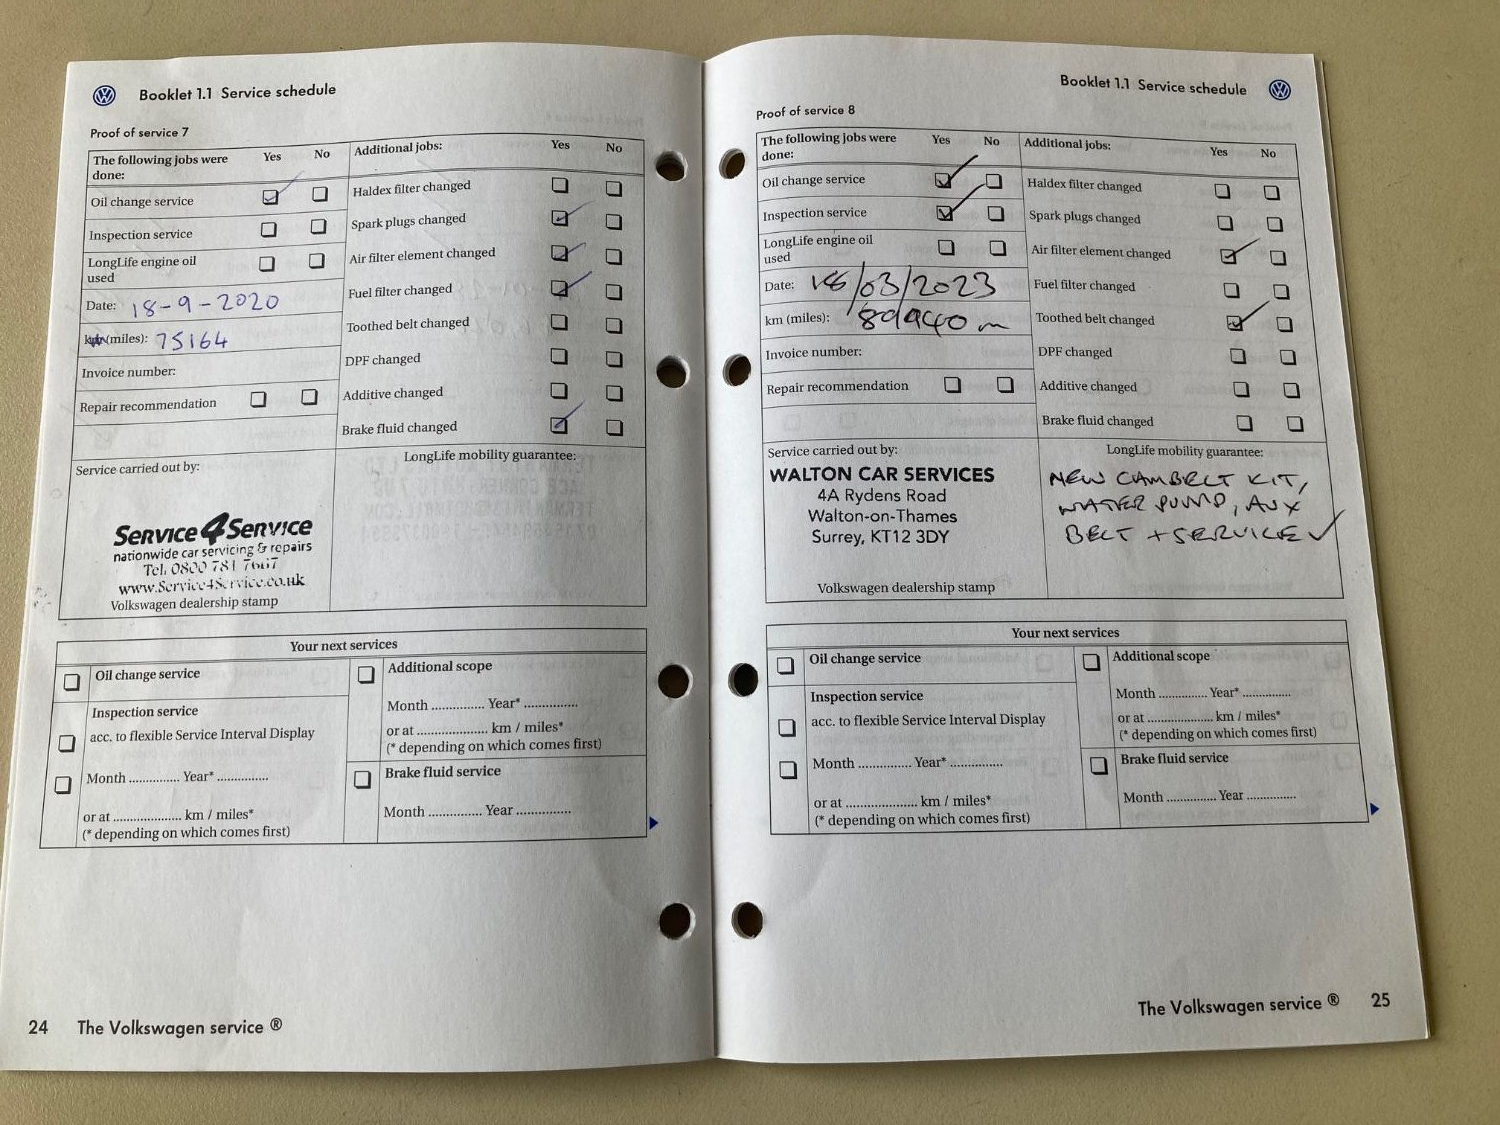 Booklet 1.1 Service schedule
Proof of service 7
The following jobs were done: Yes No
Additional jobs: Yes No
Oil change service
Haldex filter changed
Inspection service
Spark plugs changed
LongLife engine oil used
Air filter element changed
Date: 18-9-2020
Fuel filter changed
km (miles): 75164
Toothed belt changed
Invoice number:
DPF changed
Repair recommendation
Additive changed
Brake fluid changed
Service carried out by:
LongLife mobility guarantee:
Service4Service
nationwide car servicing & repairs
Tel. 0800 781 7667
www.Service4Service.co.uk
Volkswagen dealership stamp
Your next services
Oil change service
Inspection service
acc. to flexible Service Interval Display
Month .............. Year* ..............
or at .................... km / miles*
(* depending on which comes first)
Additional scope
Month .............. Year* ..............
or at .................... km / miles*
(* depending on which comes first)
Brake fluid service
Month .............. Year ..............
24 The Volkswagen service ®
Booklet 1.1 Service schedule
Proof of service 8
The following jobs were done: Yes No
Additional jobs: Yes No
Oil change service
Haldex filter changed
Inspection service
Spark plugs changed
LongLife engine oil used
Air filter element changed
Date: 18/03/2023
Fuel filter changed
km (miles):
Toothed belt changed
Invoice number:
DPF changed
Repair recommendation
Additive changed
Brake fluid changed
Service carried out by:
LongLife mobility guarantee:
WALTON CAR SERVICES
4A Rydens Road
Walton-on-Thames
Surrey, KT12 3DY
Volkswagen dealership stamp
NEW CAMBELT KIT,
WATER PUMP, AUX
BELT + SERVICE
Your next services
Oil change service
Inspection service
acc. to flexible Service Interval Display
Month .............. Year* ..............
or at .................... km / miles*
(* depending on which comes first)
Additional scope
Month .............. Year* ..............
or at .................... km / miles*
(* depending on which comes first)
Brake fluid service
Month .............. Year ..............
The Volkswagen service ® 25